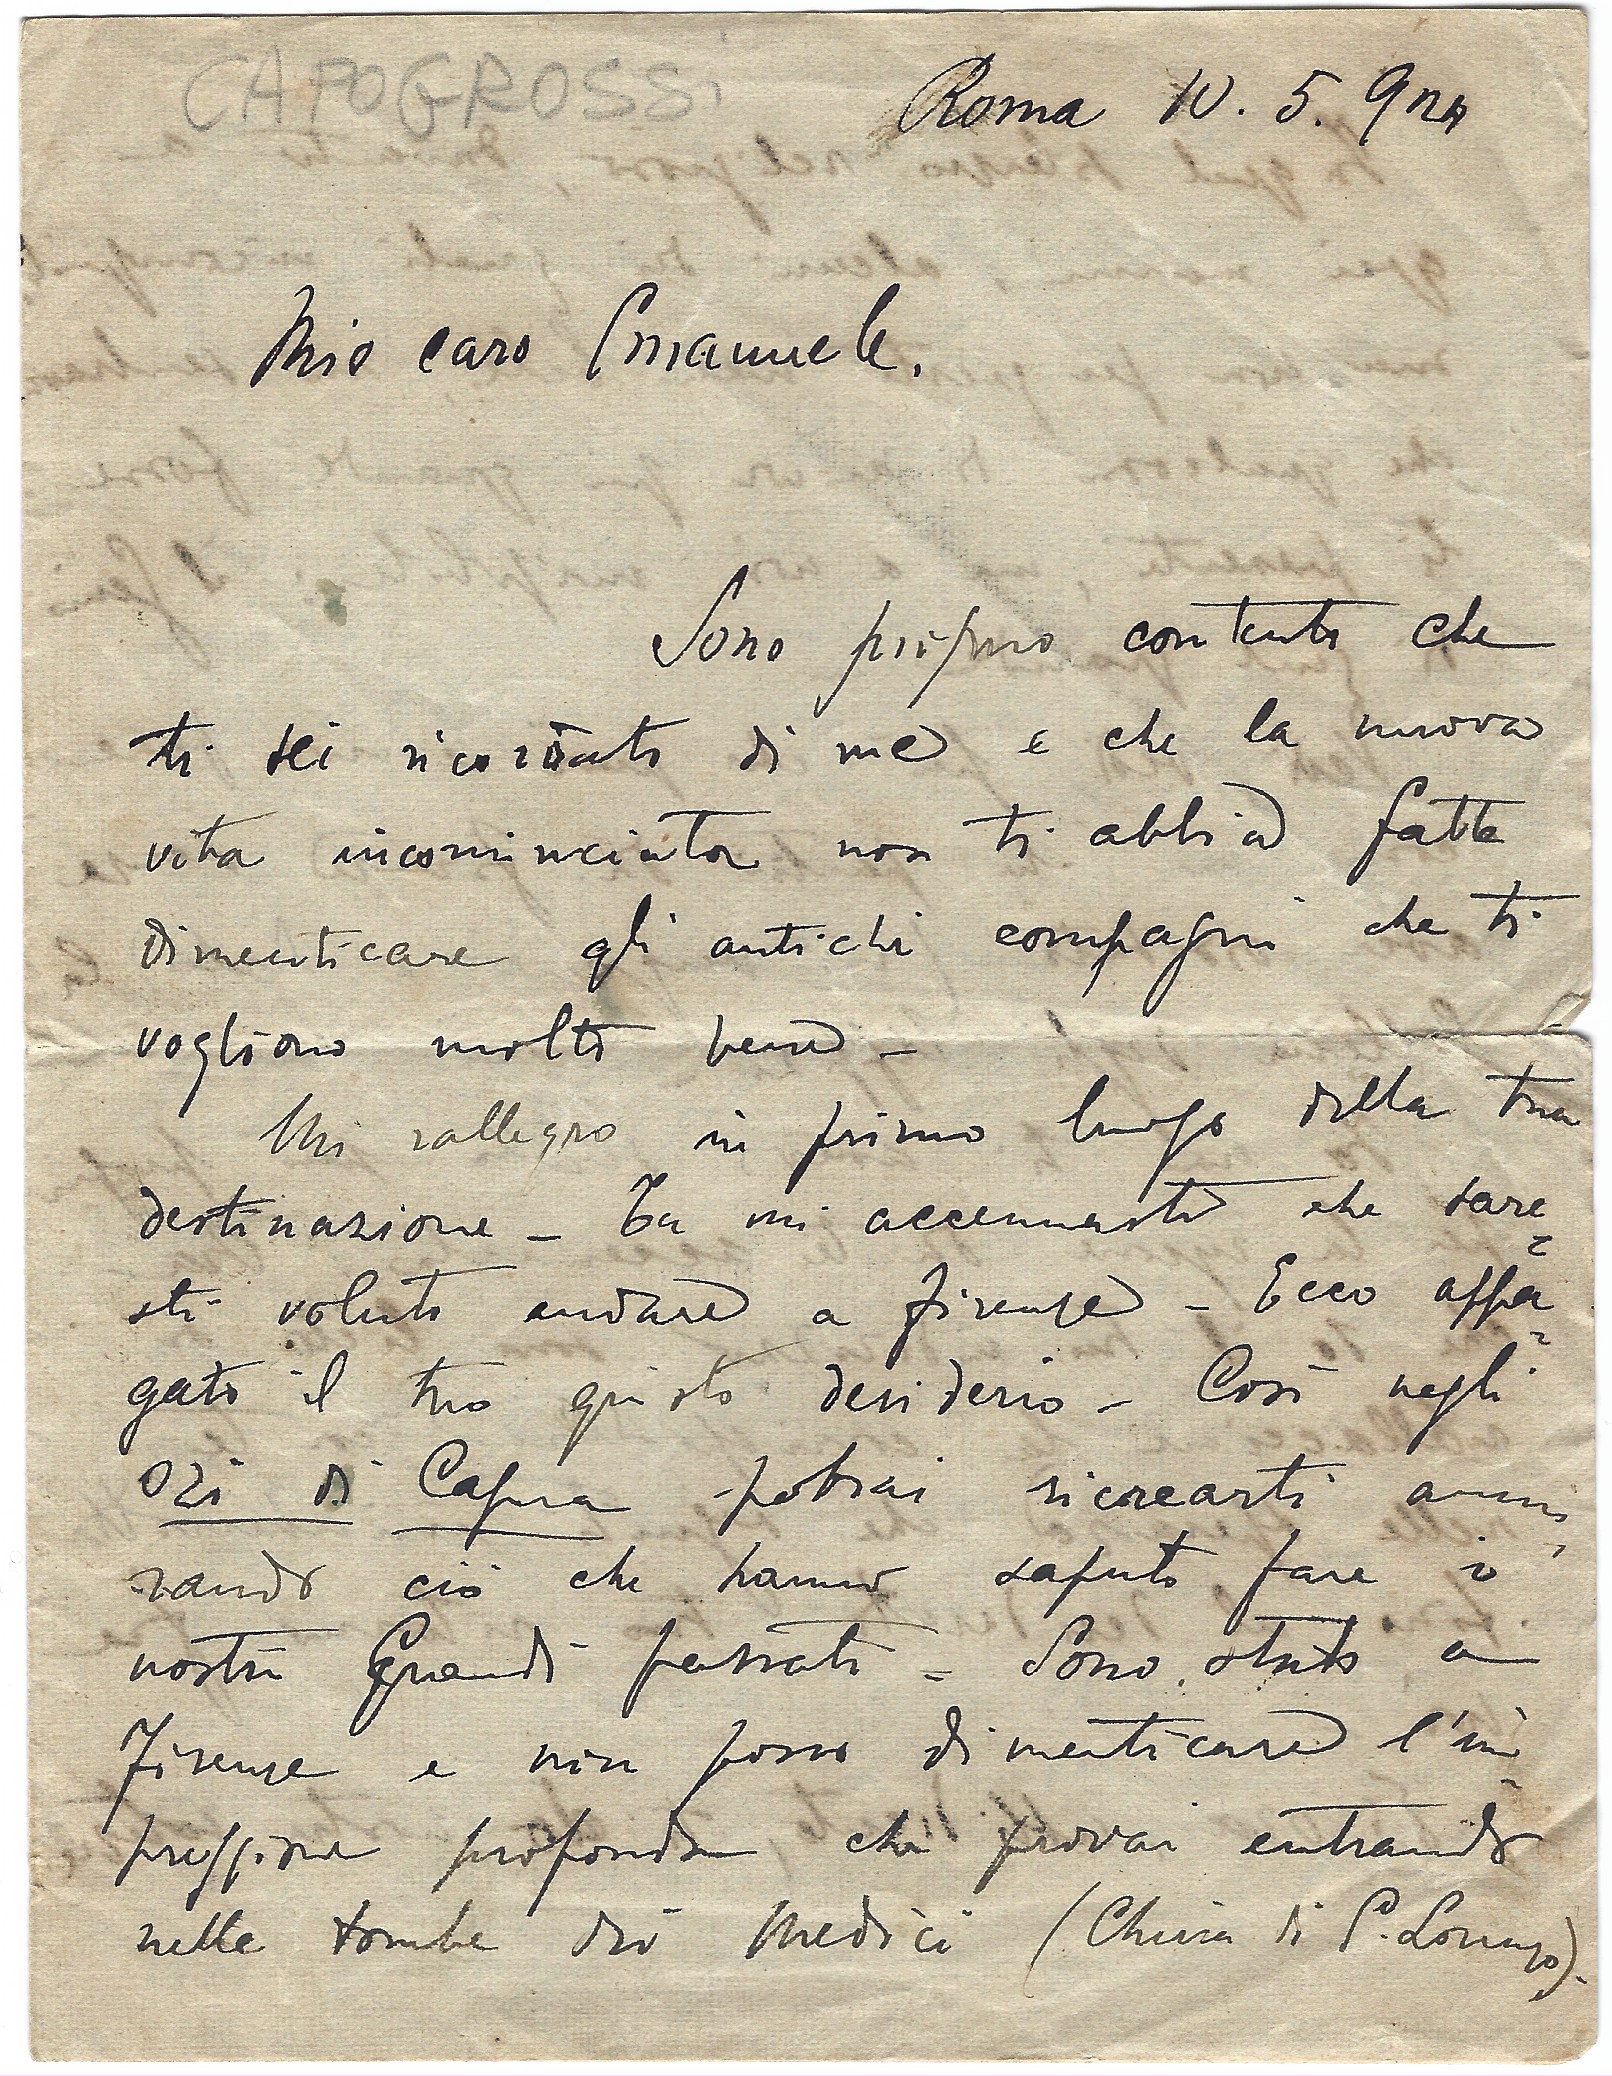 CAPOGROSSI
Roma 10. 5. 924
Mio caro Emanuele.
Sono proprio contento che
ti sei ricordato di me e che la nuova
vita incominciata non ti abbia fatto
dimenticare gli antichi compagni che ti
vogliono molto bene –
Mi rallegro in primo luogo della tua
destinazione – Tu mi accennasti che sare=
sti voluto andare a Firenze – Ecco appa=
gato il tuo giusto desiderio – Così negli
ozi di Capua potrai ricrearti ammi=
rando ciò che hanno saputo fare i
nostri Grandi passati = Sono stato a
Firenze e non posso dimenticare l'im=
pressione profonda che provai entrando
nelle tombe dei Medici (Chiesa di S. Lorenzo).